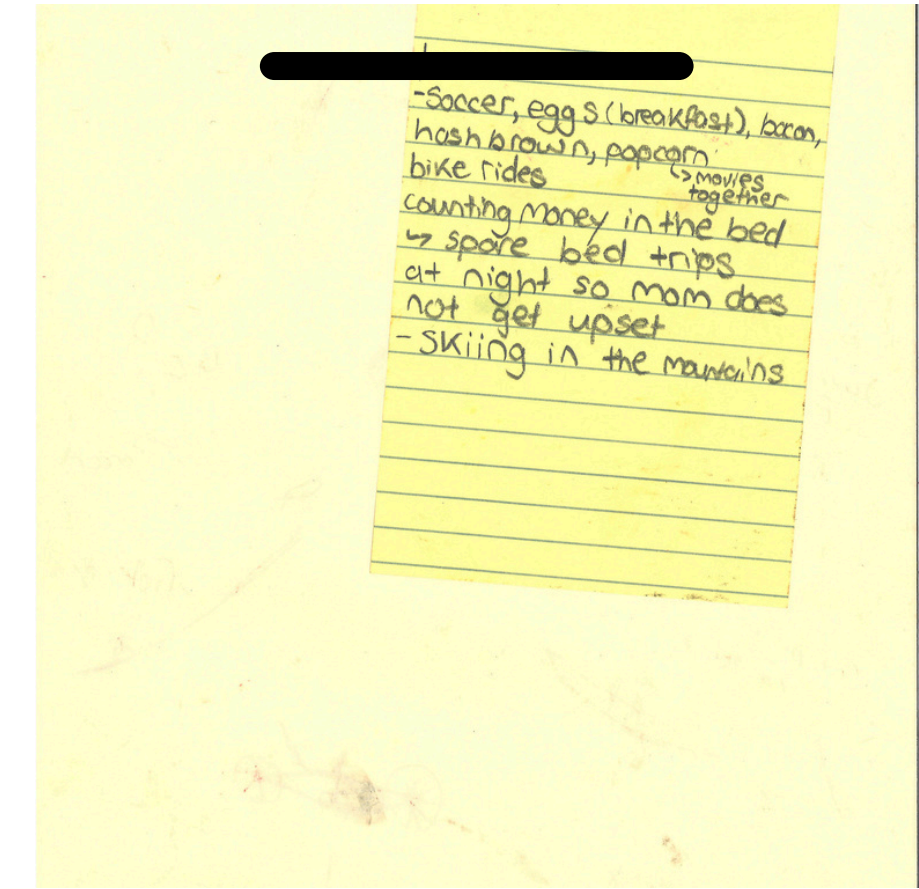 -Soccer, eggs (breakfast), bacon,
hashbrown, popcorn
↳ movies
together
bike rides
counting money in the bed
↪ spare bed trips
at night so mom does
not get upset
- Skiing in the mountains